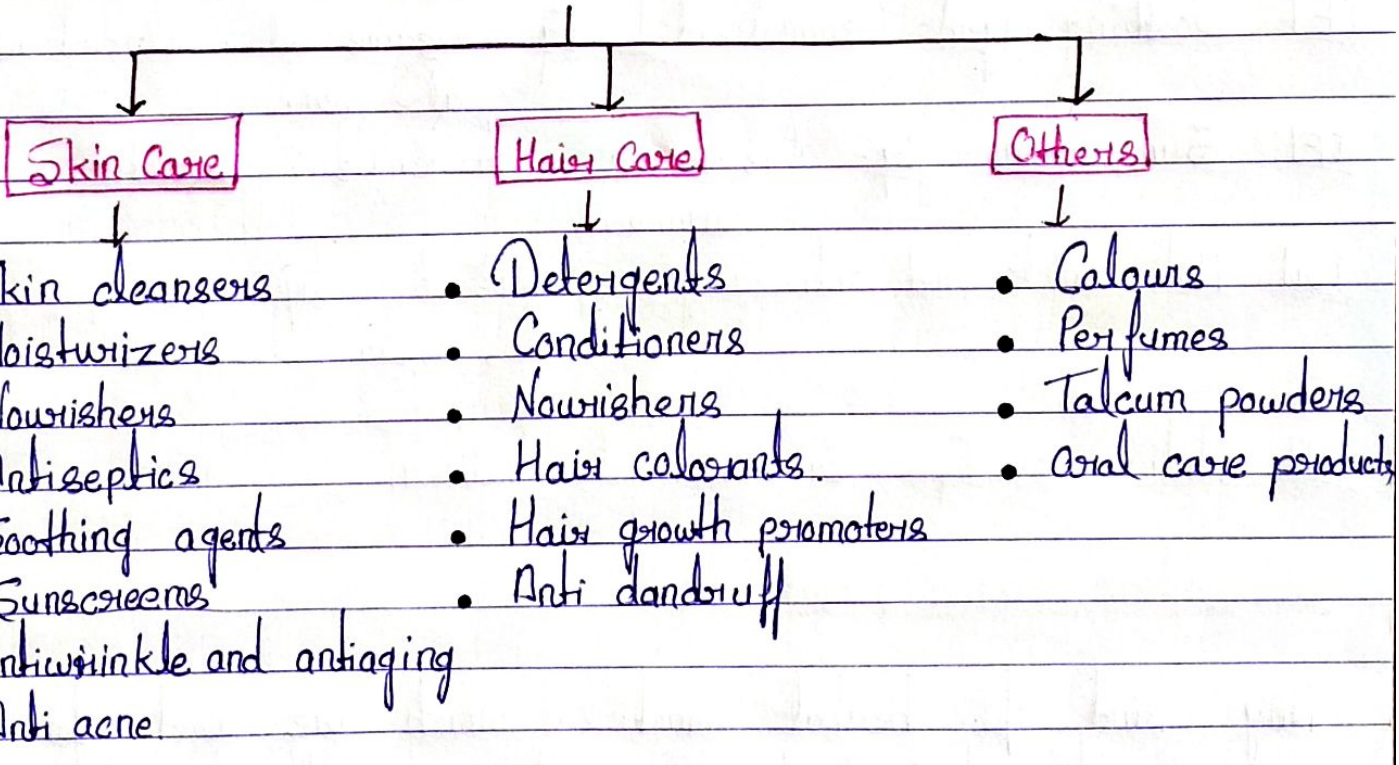 Skin Care
kin cleansers
oisturizers
ourishers
ntiseptics
oothing agents
Sunscreems
ntiwrinkle and antiaging
nti acne
Hair Care
• Detergents
• Conditioners
• Nourishers
• Hair colorants.
• Hair growth promoters
• Anti dandruff
Others
• Colours
• Perfumes
• Talcum powders
• Oral care products